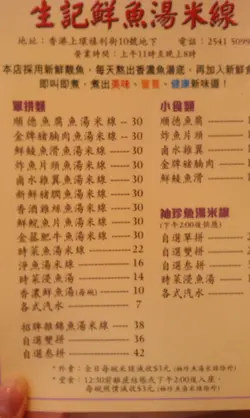 生記鮮魚湯米線
地址：香港上環禧利街10號地下 電話：2541 5099
營業時間：上午11時至晚上8時
本店採用新鮮靚魚，每天熬出香濃魚湯底，再加入新鮮
即叫即煮，煮出美味、營養、健康新味道！
單拼類
順德魚腐魚湯米線 --- 30
金牌豬腩肉魚湯米線 --- 30
鮮鯪魚滑魚湯米線 --- 30
炸魚片頭魚湯米線 --- 30
鹵水雞翼魚湯米線 --- 30
新鮮豬膶魚湯米線 --- 30
香酒雞煇魚湯米線 --- 30
鮮鯇魚片魚湯米線 --- 30
金菇肥牛魚湯米線 --- 30
時菜魚湯米線 --- 22
淨魚湯米線 --- 16
時菜浸魚湯 --- 14
香濃鮮魚湯(每碗) --- 10
各式汽水 --- 7
招牌雜錦魚湯米線 --- 38
自選雙拼 --- 36
自選叁拼 --- 42
小食類
順德魚腐
炸魚片頭
鹵水雞翼
金牌豬腩肉
鮮鯪魚滑
袖珍魚湯米線
(下午2:00後供應)
自選單拼
自選雙拼
自選叁拼
時菜浸魚湯
各式汽水
* 外賣：全日每碗米線減收$3元
* 堂食：12:30前離座枱或下午2:00後入座，
每碗照價減收$3元